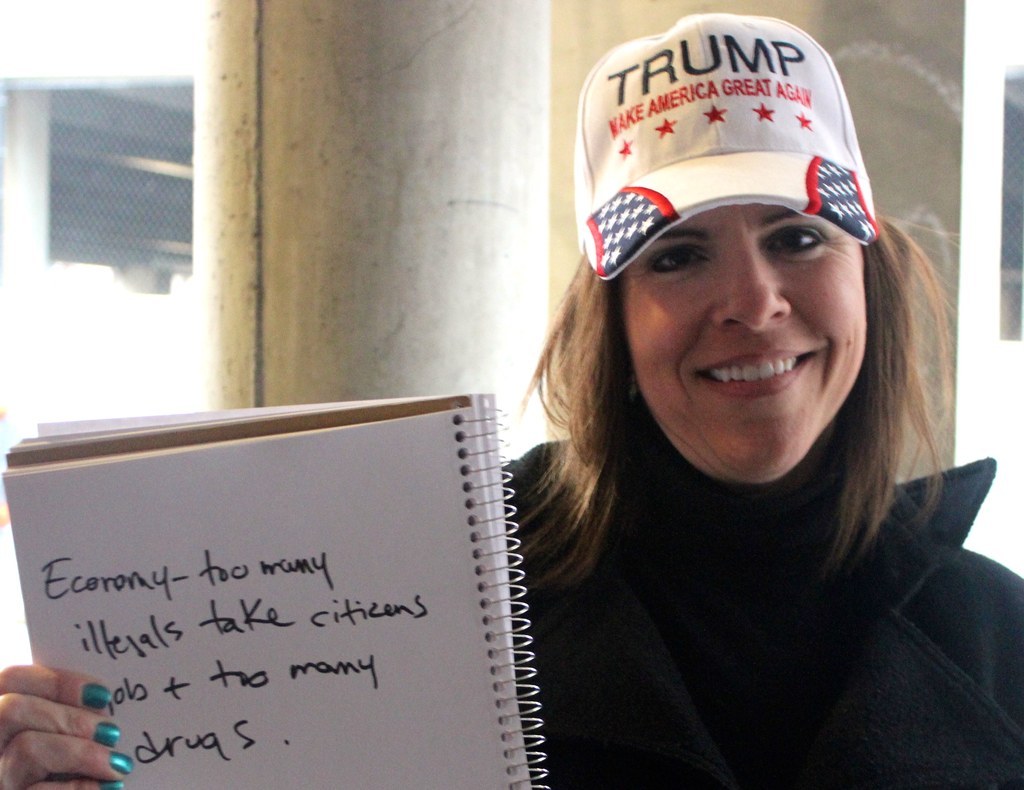 TRUMP
MAKE AMERICA GREAT AGAIN
Economy - too many
illegals take citizens
job + too many
drugs.